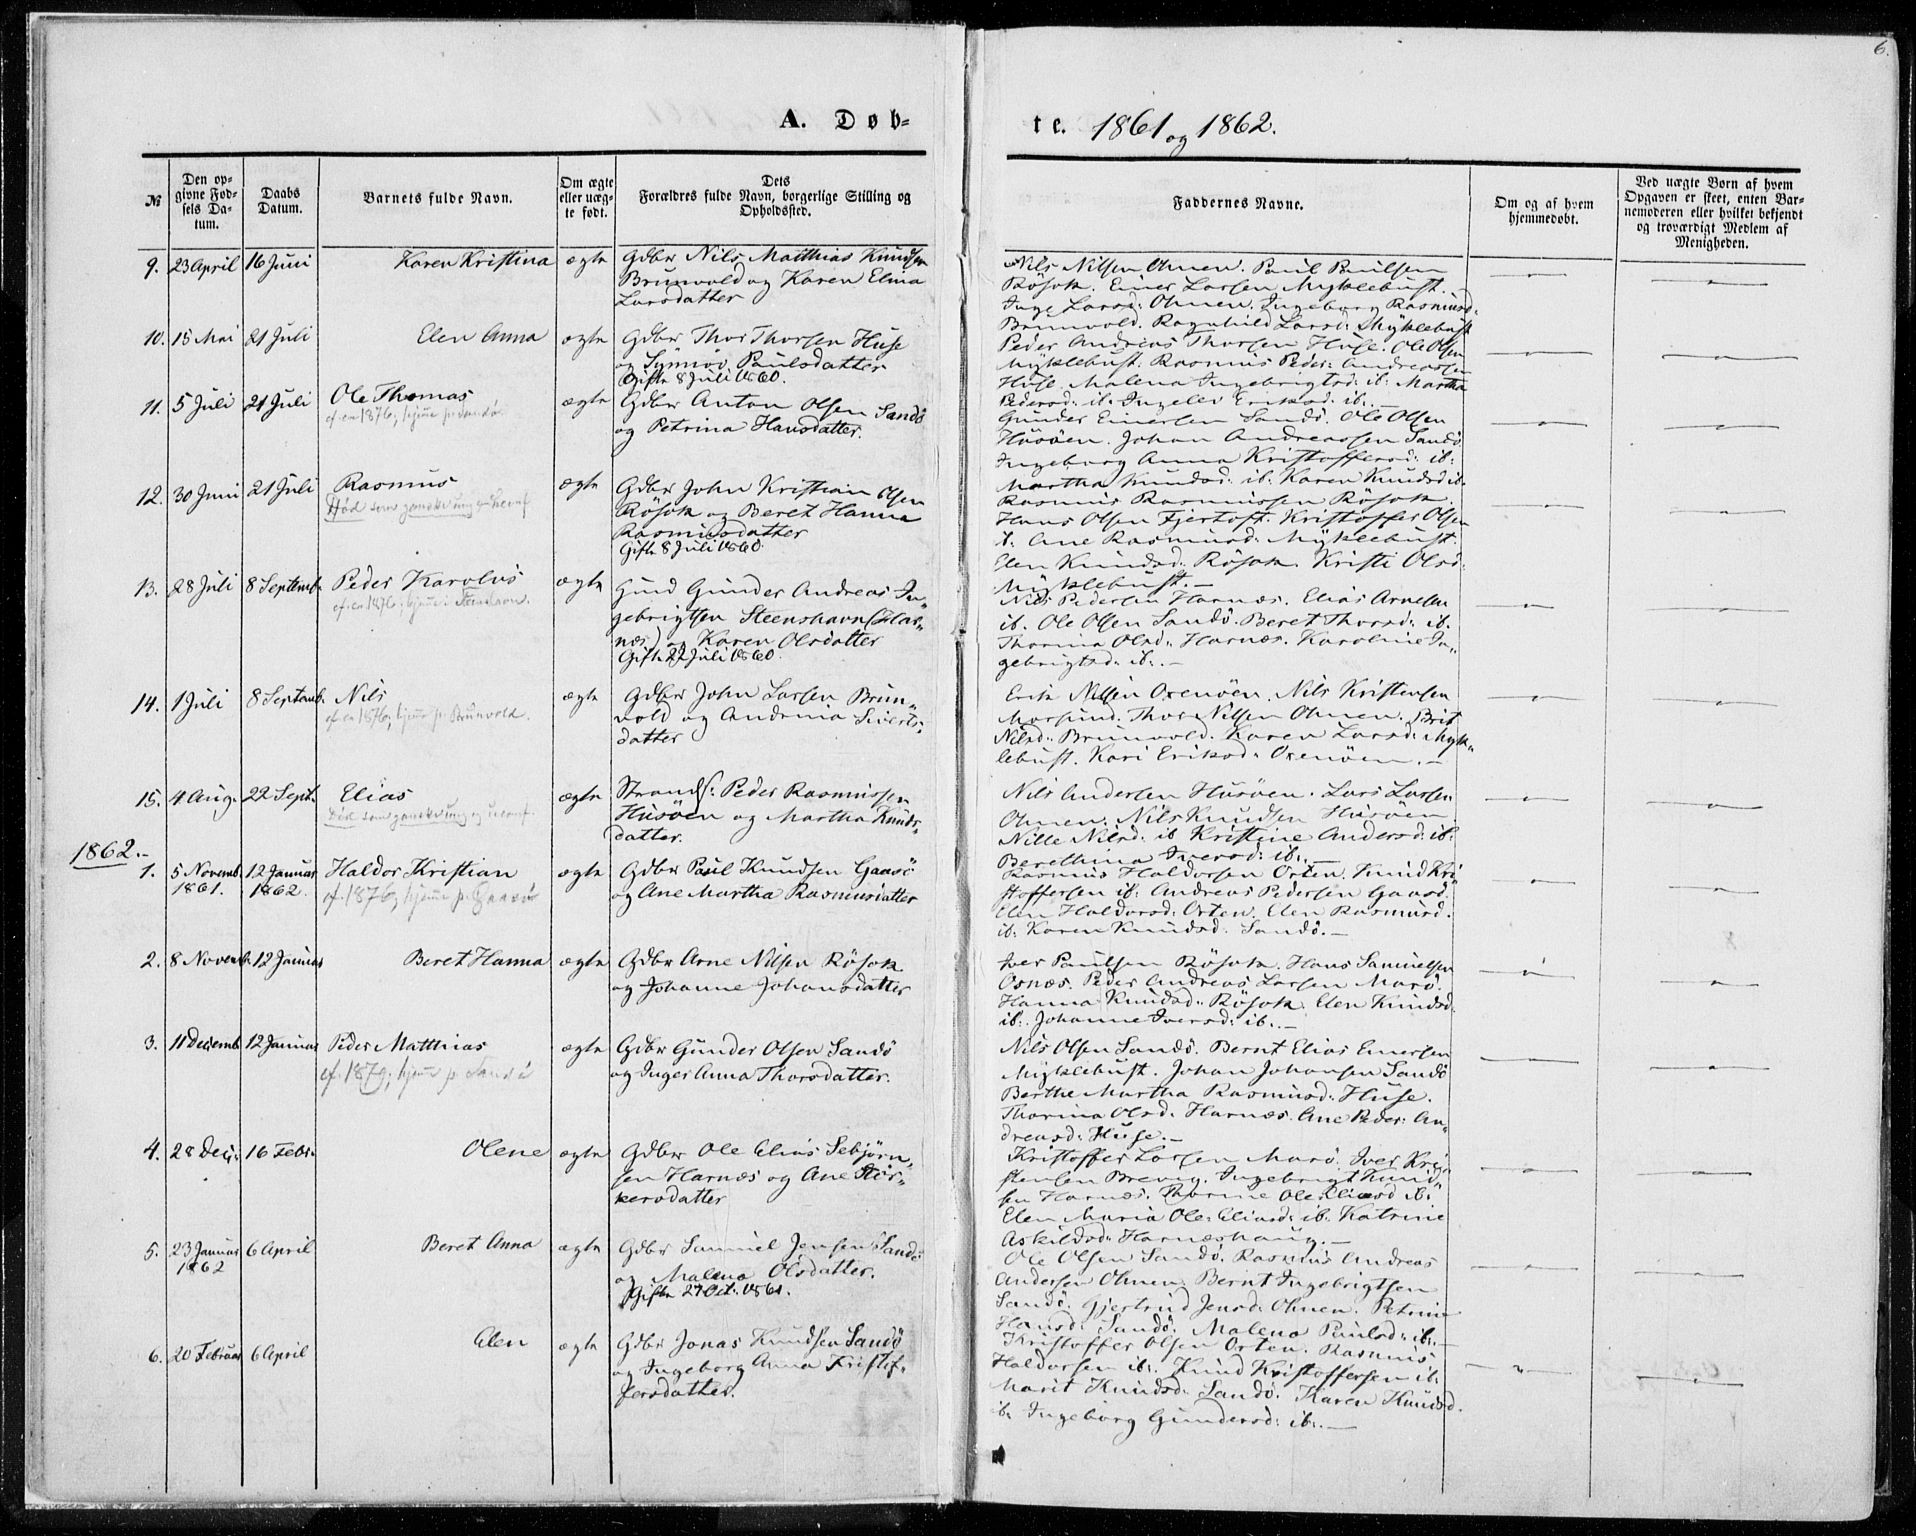 6.
A. Døb-
te. 1861 og 1862.
№
Den op-
givne Fød-
sels Da-
tum.
Daabs
Datum.
Barnets fulde Navn.
Om ægte
eller uæg-
te født.
Dets
Forældres fulde Navn, borgerlige Stilling og
Opholdssted.
Faddernes Navne.
Om og af hvem
hjemmedøbt.
Ved uægte Børn af hvem
Opgaven er skeet, enten Bar-
nemoderen eller hvilket bekjendt
og troværdigt Medlem af
Menigheden.
9. 23 April 16 Juni Karen Kristina ægte Gdbr Nils Matthias Knudsen
Brunvold og Karen Elina
Larsdatter
Nils Nilsen Ohnen. Paul Paulsen
Røsok. Einer Larsen Myklebust.
Inge Larsd: Ohnen. Ingeborg Rasmusd:
Brunvold. Ragnhild Larsd: Myklebust
10. 15 Mai 21 Juli Elen Anna ægte Gdbr Thor Thorsen Huse
og Synnøv Paulsdatter
Gifte 8 Juli 1860.
Peder Andreas Thorsen Huse. Ole Olsen
Myklebust. Rasmus Peder Andreassen
Huse. Malena Ingebrigtsd: ib: Martha
Pedersd: ib. Ingelev Eriksd: ib:
11. 5 Juli 21 Juli Ole Thomas ægte Gdbr Anton Olsen Sandø
ef. en 1876, hjeme p. Sandø
og Petrina Hansdatter.
Gunder Einersen Sandø. Ole Olsen
Husøen. Johan Andreassen Sandø
Ingeborg Anna Kristoffersd: ib:
Martha Knudsd: ib: Karen Knudsd ib.
12. 30 Juni 21 Juli Rasmus ægte Gdbr John Kristian Olsen
Død som ganske ung
Røsok og Beret Hanna
Rasmusdatter
Gifte 8 Juli 1860.
Rasmus Rasmussen Røsok.
Hans Olsen Fjertoft. Kristoffer Olsen
ib. Ane Rasmusd: Myklebust.
Elen Knudsd: Røsok. Kristi Olsd:
Myklebust.
13. 28 Juli 8 Septemb. Peder Karolus ægte Gmd Gunder Andreas In-
ef. en 1876; hjeme i Steenshavn.
gebrigtsen Steenshavn (Har-
næs) og Karen Olsdatter
Gifte 22 Juli 1860.
Nils Pedersen Harnæs. Elias Arnesen
ib. Ole Olsen Sandø. Beret Thorsd: ib.
Thorina Olsd: Harnæs. Karoline In-
gebrigtsd: ib:
14. 1 Juli 8 Septemb. Nils ægte Gdbr John Larsen Brun-
ef. en 1876, hjeme p. Brunvold.
vold og Andrina Siverts-
datter
Erik Nilsen Oxenøen. Nils Kristensen
Morsund. Thor Nilsen Ohnen. Brit
Nilsd: Brunvold. Karen Larsd: Myk-
lebust. Kari Eriksd: Oxenøen.
15. 4 Aug. 22 Sept. Elias ægte Strands: Peder Rasmussen
Død som ganske ung
Husøen og Martha Knuds-
datter.
Nils Andersen Husøen. Lars Larsen
Ohnen. Nils Knudsen Husøen.
Nille Nilsd: ib Kristine Andersd: ib:
Berethina Iversd: ib:
1862.
1. 5 Novemb. 1861. 12 Januar 1862. Haldor Kristian ægte Gdbr Paul Knudsen Gaasø
ef. 1876; hjeme p. Gaasø
og Ane Martha Rasmusdatter
Rasmus Haldorsen Orten. Knud Kri-
stoffersen ib: Andreas Pedersen Gaasø.
Elen Haldorsd: Orten. Elen Rasmusd:
ib: Karen Knudsd: Sandø.
2. 8 Novemb. 12 Januar Beret Hanna ægte Gdbr Arne Nilsen Røsok
og Johanne Johansdatter
Iver Paulsen Røsok. Hans Samuelsen
Osnæs. Peder Andreas Larsen Marø.
Hanna Knudsd: Røsok. Elen Knudsd.
ib:. Johanne Iversd: ib:.
3. 11 Decemb. 12 Januar Peder Matthias ægte Gdbr Gunder Olsen Sandø
ef. 1876; hjeme p. Sandø
og Inger Anna Thorsdatter.
Nils Olsen Sandø. Bernt Elias Einersen
Myklebust. Johan Johansen Sandø
Berthe Martha Rasmusd: Huse.
Thorina Olsd: Harnæs. Ane Peder: An-
dreasd: Huse.
4. 28 Dec: 16 Febr. Olene ægte Gdbr Ole Elias Sebjørn-
sen Harnæs og Ane Stor-
kersdatter
Kristoffer Larsen Marø. Iver Kri-
stensen Brevig. Ingebrigt Knud-
sen Harnæs. Thorine Ole Eliasd ib:
Elen Maria Ole: Eliasd: ib. Katrine
Askildsd: Harnæshaug.
5. 23 Januar 1862 6 April Beret Anna ægte Gdbr Samuel Jensen Sandø
og Malena Olsdatter.
Gifte 27 Oct. 1861.
Ole Olsen Sandø. Rasmus Andreas
Andersen Ohnen. Bernt Ingebrigtsen
Sandø. Gjertrud Jensd: Ohnen. Petrina
Hansd: Sandø. Malena Paulsd: ib:.
6. 20 Februar 6 April Elen ægte Gdbr Jonas Knudsen Sandø
og Ingeborg Anna Kristof-
fersdatter.
Kristoffer Olsen Orten. Rasmus
Haldorsen ib:. Knud Kristoffersen ib.
Marit Knudsd: Sandø. Karen Knudsd.
ib. Ingeborg Gundersd: ib:.